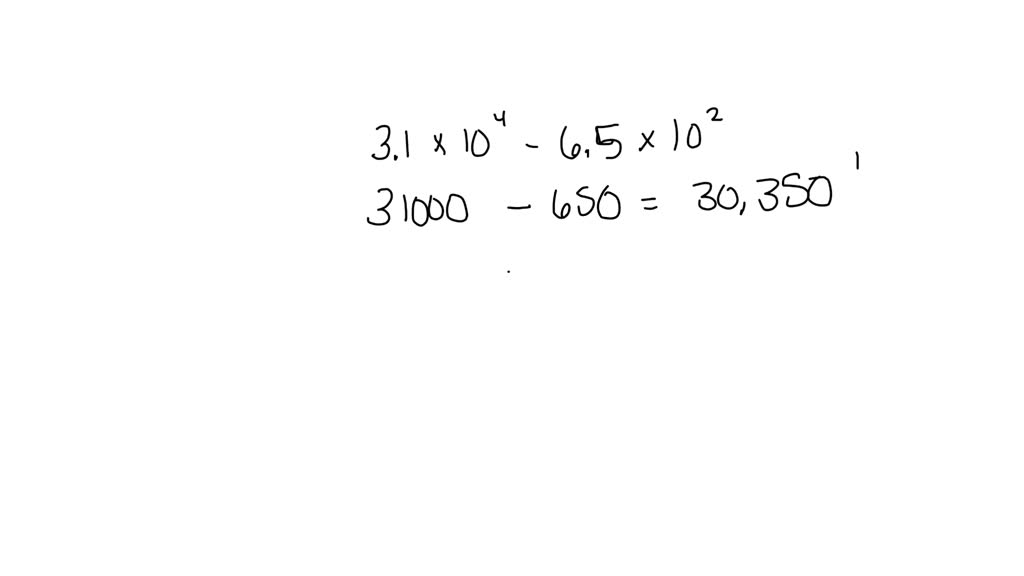 3.1 × 10⁴ - 6.5 × 10²
31000 - 650 = 30,350 '